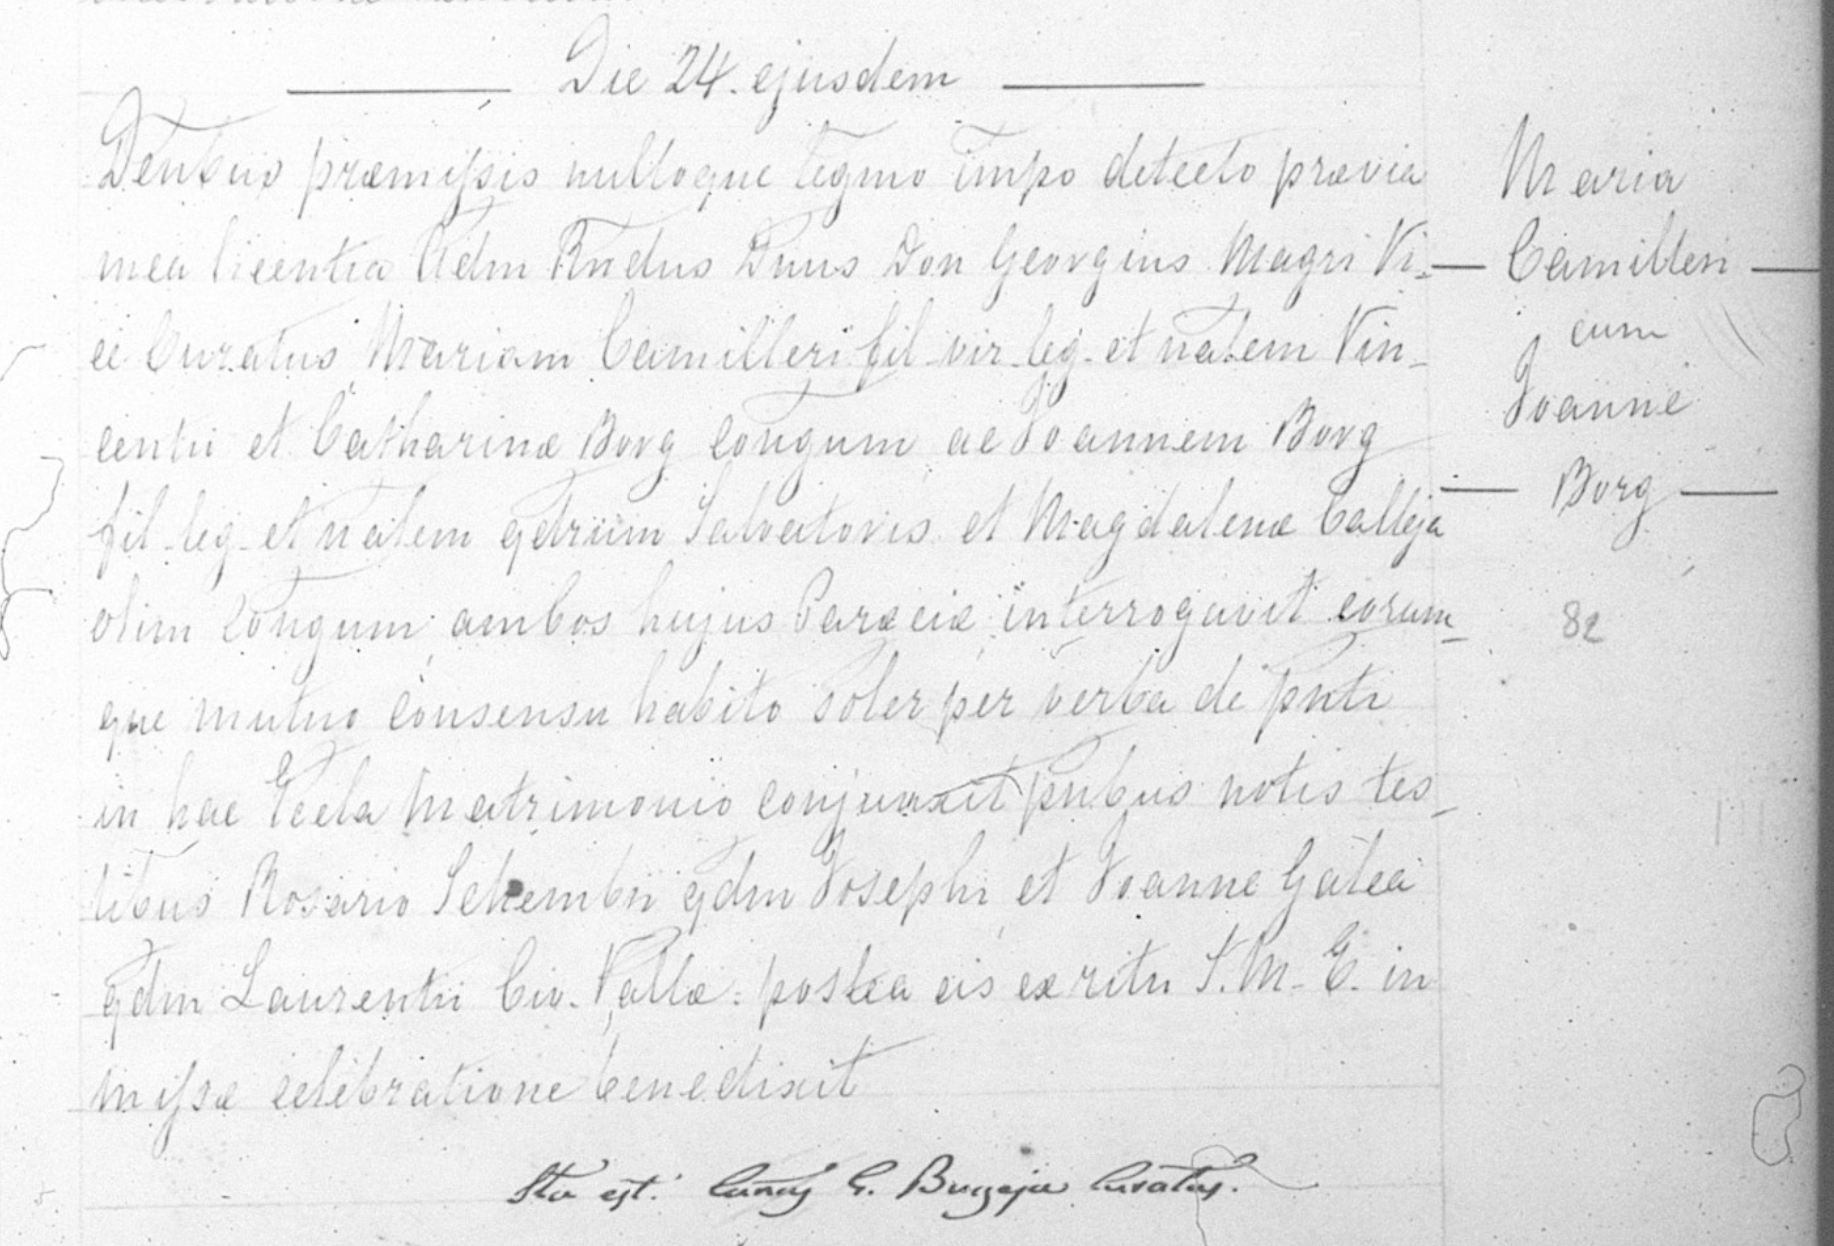 Die 24. ejusdem
Dentbus præmissis nulloque legmo impo detecto prævia
mea licentia Adm Rndus Dnus Don Georgius Magri Vi-
ce Curatus Mariam Camilleri fil vir leg. et natem Vin-
centii et Catharinæ Borg conjgum ac Joannem Borg
fil leg. et natem qdrum Salvatoris et Magdalenæ Calleja
olim conjgum ambos hujus Paraeciæ interrogavit eorum-
que mutuo consensu habito soler per verba de pnti
in hac Eccla Matrimonio conjunxit pntbus notis tes-
tibus Rosario Schembri qdm Josephi et Joanne Galea
qdm Laurentii Civ. Vallæ. postea eis ex ritu S. M. E. in
missæ celebratione benedixit
Ita est. Canus G. Bugeja Curatus.
Maria
Camilleri
cum
Joanne
Borg
82